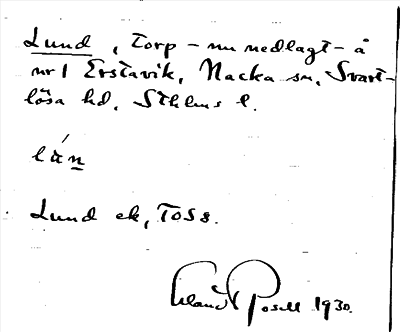 Lund, torp - nu nedlagt - å
nr 1 Erstavik, Nacka sn, Svart-
lösa hd, Sthlms l.
lán
Lund ek, TOS 8.
Erland Rosell 1930.